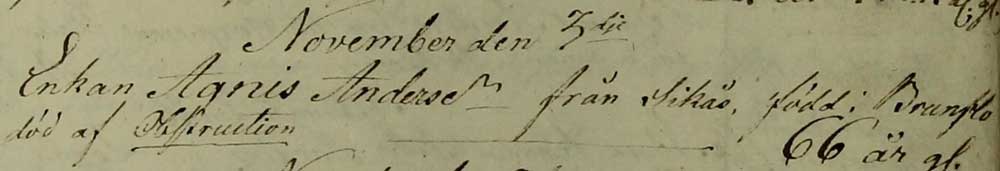 November den 3dje
Enkan Agnis Anders Dr från Sikås, född i Brunflo
död af Obstruction 66 år gl.